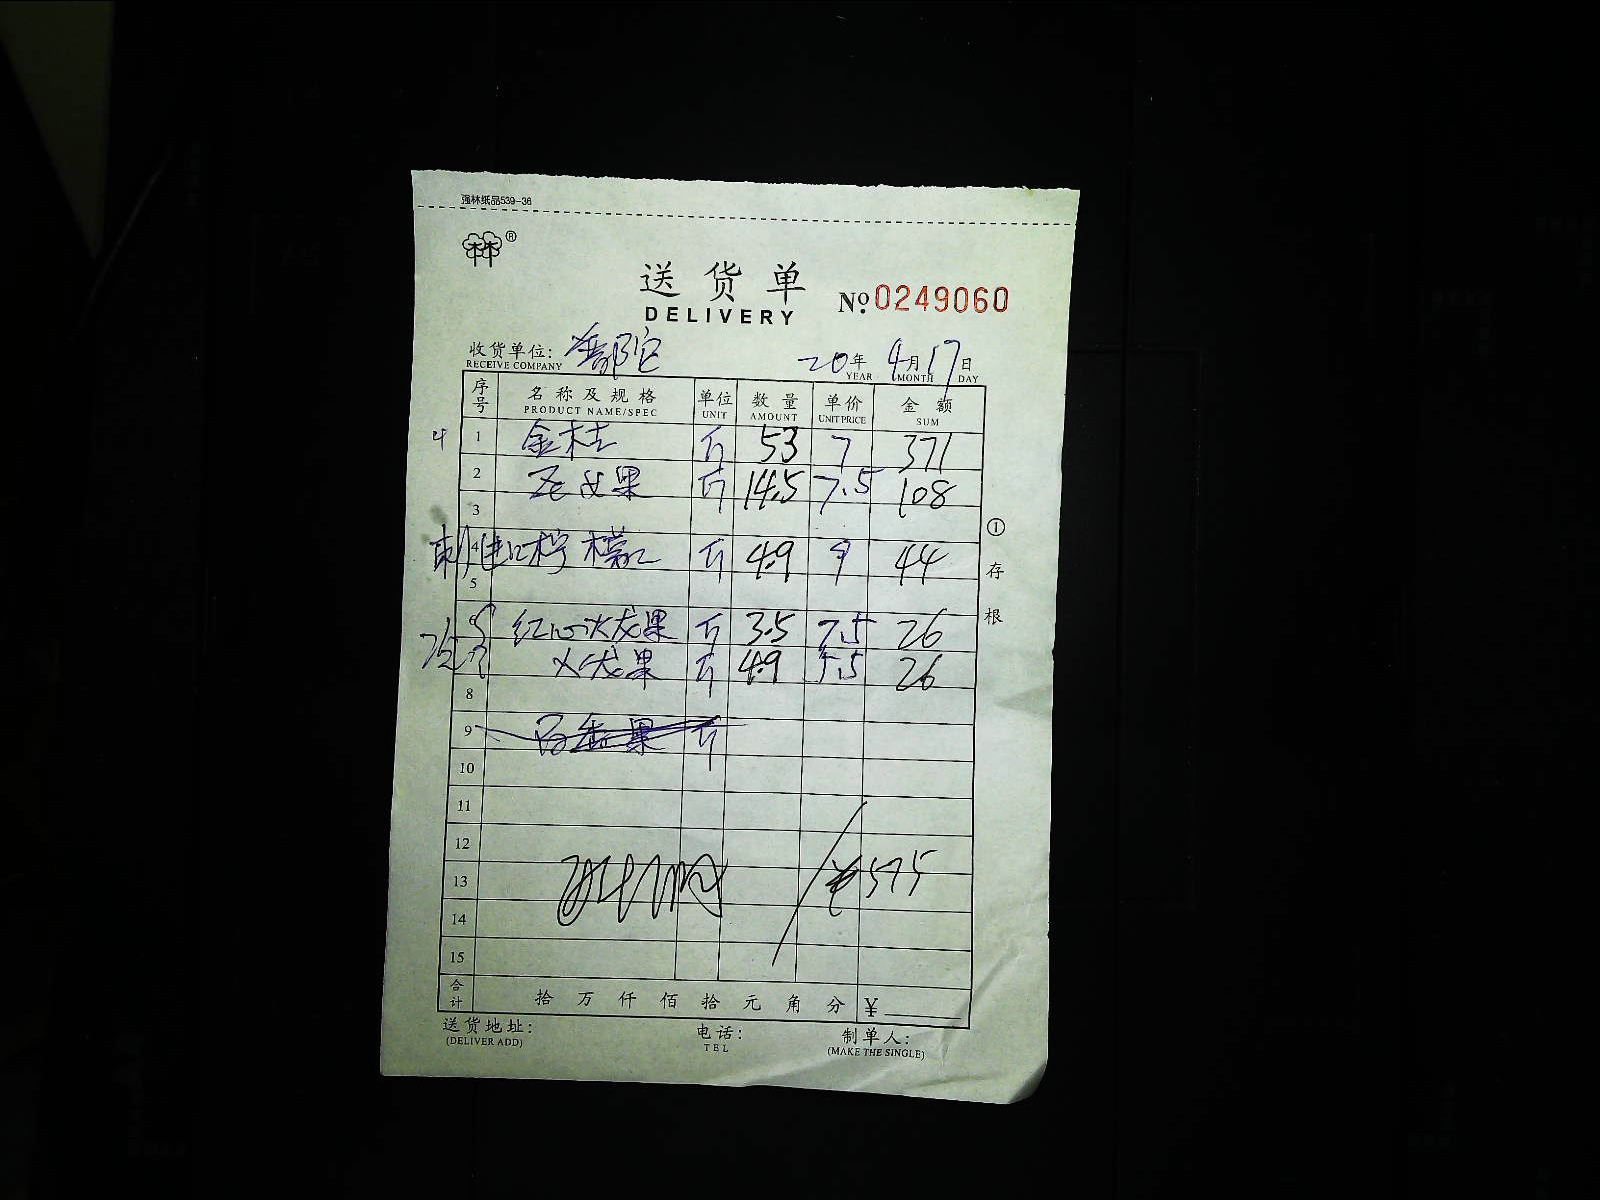 强林纸品539-36
林®
送货单 №0249060
DELIVERY
收货单位: 20年 4月17日
RECEIVE COMPANY YEAR MONTH DAY
序号 名称及规格 单位 数量 单价 金额
PRODUCT NAME/SPEC UNIT AMOUNT UNIT PRICE SUM
4 1 金桔 斤 53 7 371
2 果 斤 14.5 7.5 108
3
4 柠檬 斤 4.9 9 44
5
6 红心火龙果 斤 3.5 7.5 26
7 火龙果 斤 4.9 5.5 26
8
9 百香果 斤
10
11
12
13 ¥575
14
15
合计 拾万仟佰拾元角分 ¥
送货地址: 电话: 制单人:
(DELIVER ADD) TEL (MAKE THE SINGLE)
①存根